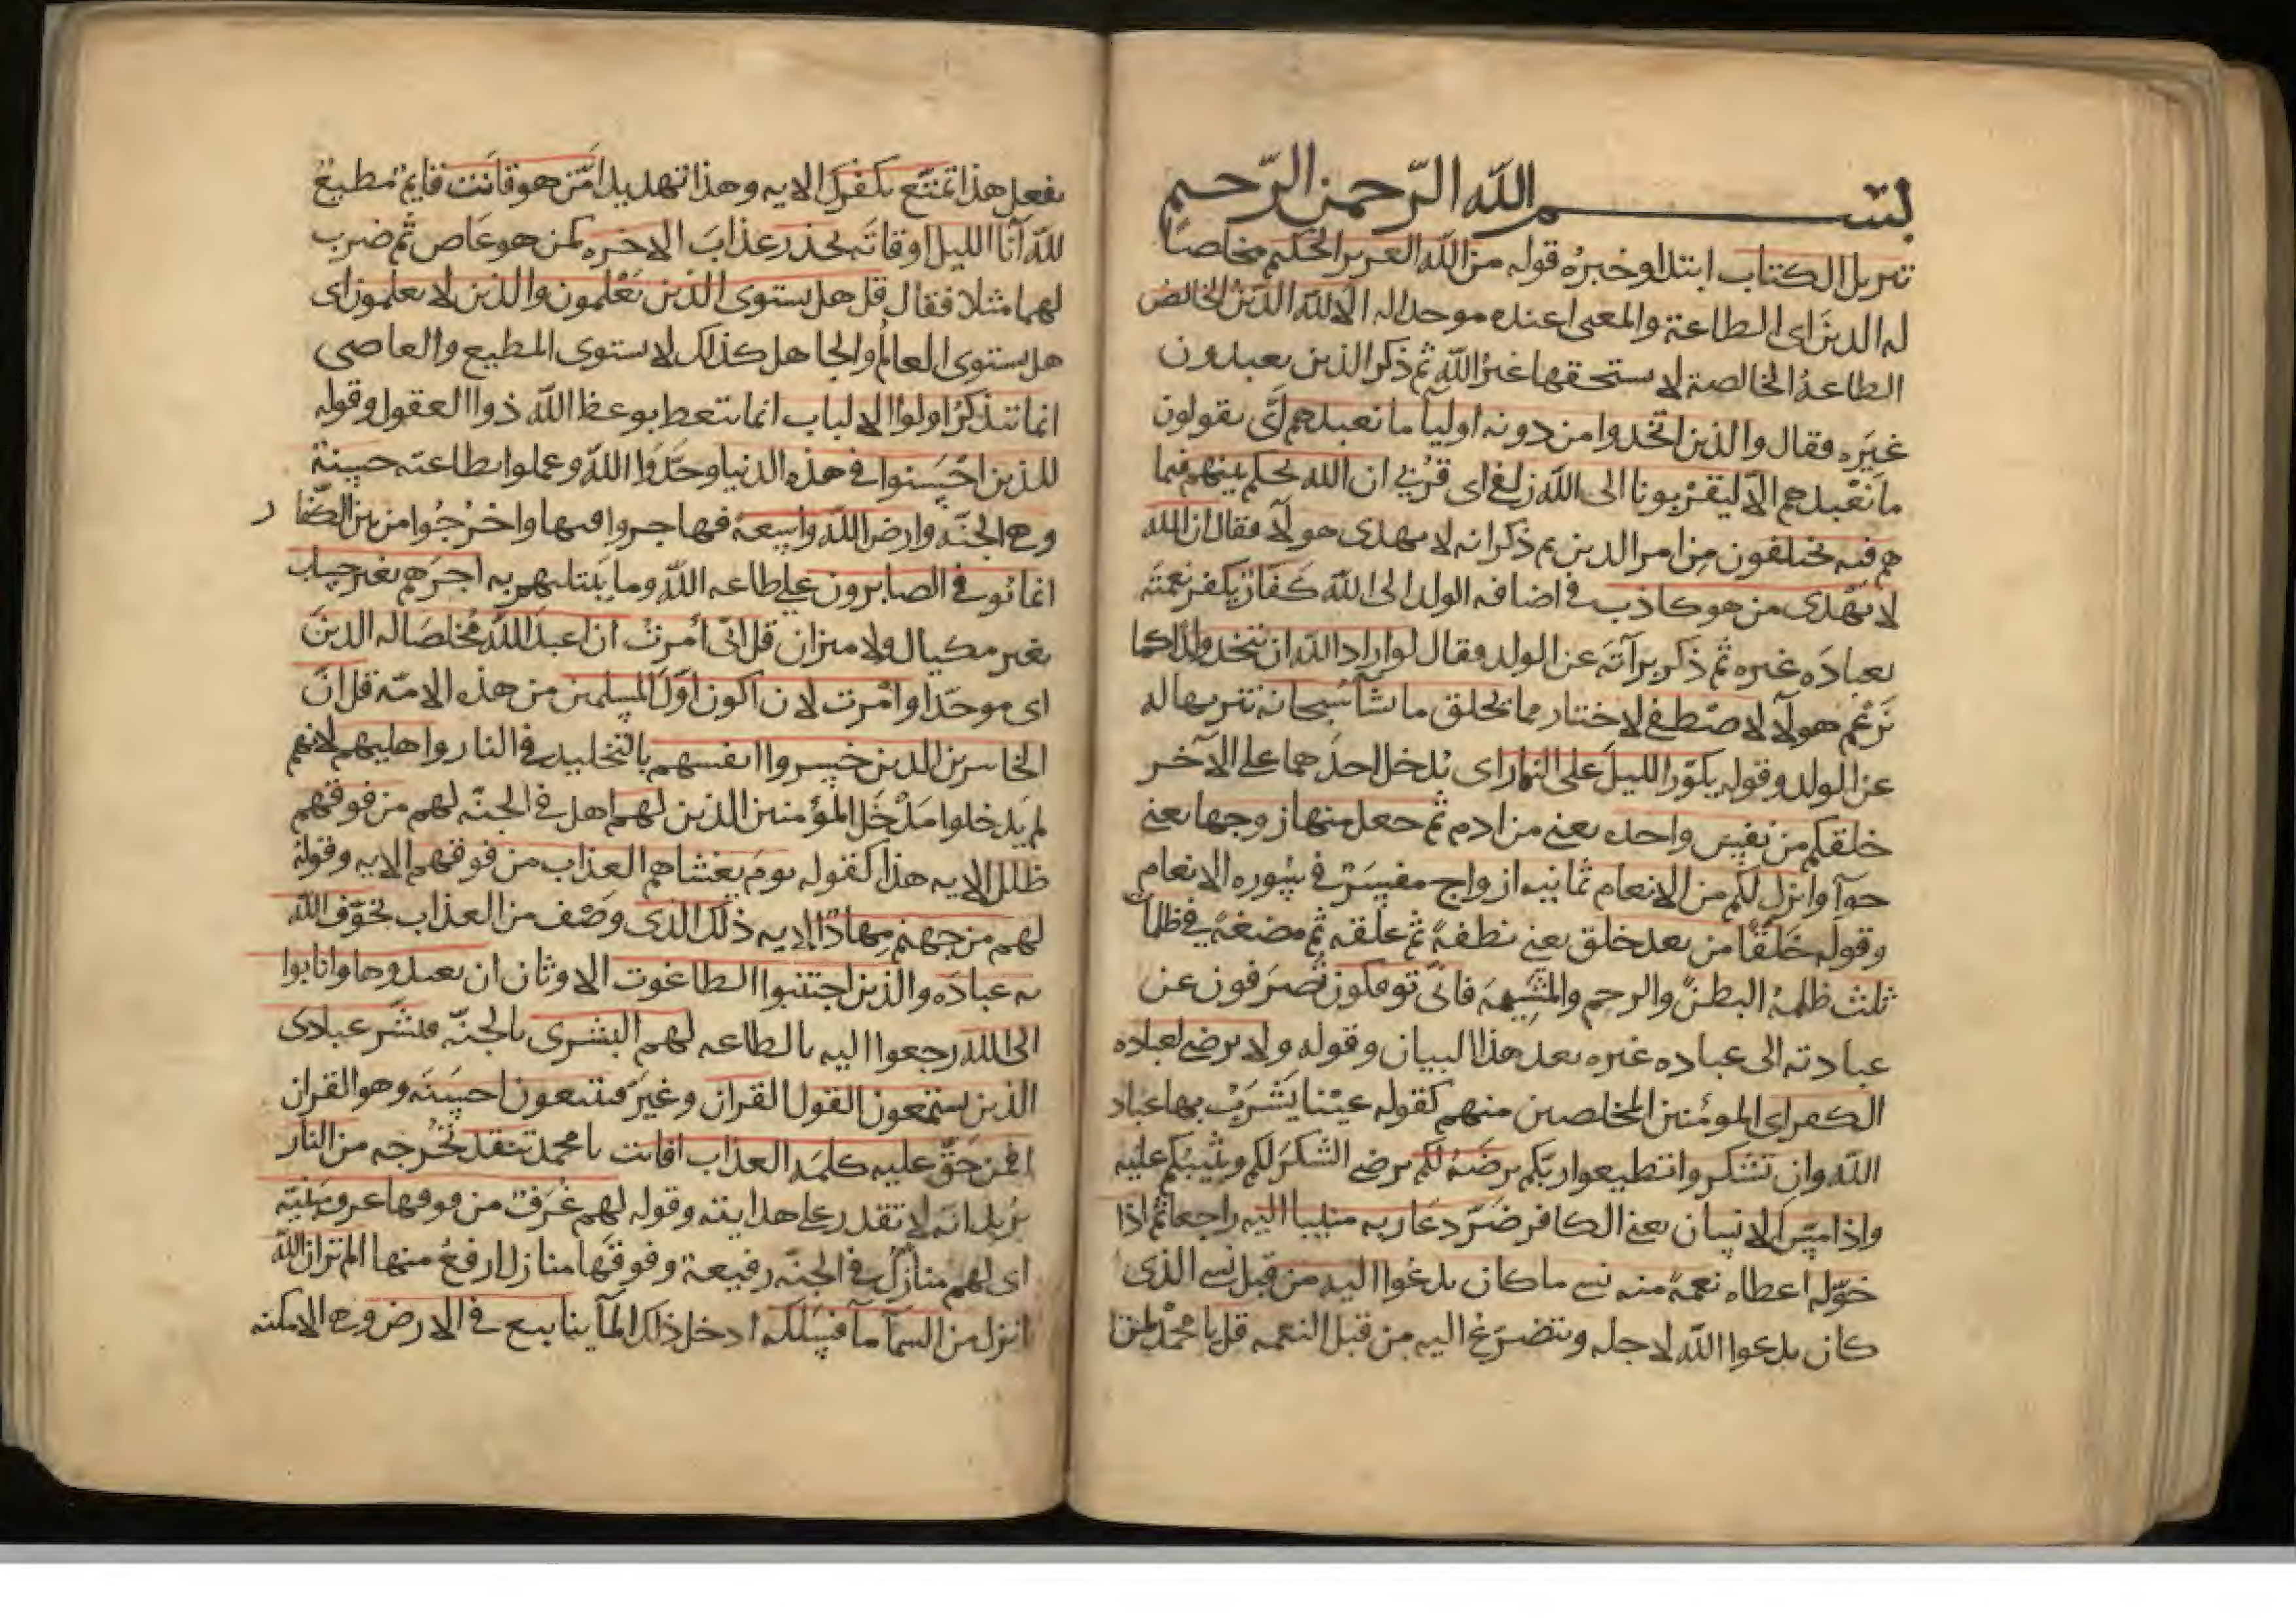 بسم الله الرحمن الرحيم
تنزيل الكتاب ابتدا وخبره قوله من الله العزيز الحكيم مخلصا
له الدين اى الطاعة والمعنى اعبده موحدا لا اله الا الله الا لله الدين الخالص
الطاعة الخالصة لا يستحقها غير الله ثم ذكر الذين يعبدون
غيره فقال والذين اتخذوا من دونه اوليا ما نعبدهم اى يقولون
ما نعبدهم الا ليقربونا الى الله زلفى اى قربى ان الله يحكم بينهم فيما
هم فيه يختلفون من امر الدين ثم ذكر انه لا يهدى هولآ فقال ان الله
لا يهدى من هو كاذب فى اضافه الولد الى الله كفار يكفر نعمته
بعباده غيره ثم ذكر برآته عن الولد فقال لو اراد الله ان يتخذ ولدا كما
تزعم هولآ لاصطفى لاختار مما يخلق ما يشآ سبحانه تنزيها له
عن الولد وقوله يكور الليل على النهار اى يدخل احدهما على الآخر
خلقكم من نفس واحده يعنى من ادم ثم جعل منها زوجها يعنى
حوآ وانزل لكم من الانعام ثمانيه ازواج مفسر فى سوره الانعام
وقوله خلقا من بعد خلق يعنى نطفة ثم علقه ثم مضغة فى ظلمات
ثلث ظلمة البطن والرحم والمشيمة فانى توفكون تصرفون عن
عبادته الى عباده غيره بعد هذا البيان وقوله ولا يرضى لعباده
الكفر اى المؤمنين المخلصين منهم كقوله عينا يشرب بها عباد
الله وان تشكروا تطيعوا ربكم يرضه لكم يرضى الشكر لكم ويثيبكم عليه
واذا مس الانسان يعنى الكافر ضر دعا ربه منيبا اليه راجعا ثم اذا
خوله اعطاه نعمة منه نسى ما كان يدعوا اليه من قبل نسى الذى
كان يدعوا الله لاجله ويتضرع اليه من قبل النعمه قل يا محمد لمن
يفعل هذا تمتع بكفرك الايه وهذا تهديد امن هو قانت قايم مطيع
لله آنا الليل اوقاته يحذر عذاب الاخره كمن هو عاص ثم ضرب
لهما مثلا فقال قل هل يستوى الذين يعلمون والذين لا يعلمون اى
هل يستوى العالم والجاهل كذلك لا يستوى المطيع والعاصى
انما يتذكر اولوا الالباب انما يتعظ بوعظ الله ذوا العقول وقوله
للذين احسنوا فى هذه الدنيا وحدوا الله وعملوا بطاعته حسنة
وهى الجنة وارض الله واسعة فهاجروا فيها واخرجوا من بين الكفار
انما يوفى الصابرون على طاعه الله وما يبتليهم به اجرهم بغير حساب
بغير مكيال ولا ميزان قل انى امرت ان اعبد الله مخلصا له الدين
اى موحدا وامرت لان اكون اول المسلمين من هذه الامة قل ان
الخاسرين الذين خسروا انفسهم بالتخليد فى النار واهليهم لانهم
لم يدخلوا مدخل المؤمنين الذين لهم اهل فى الجنة لهم من فوقهم
ظلل الايه هذا كقوله يوم يغشاهم العذاب من فوقهم الايه وقوله
لهم من جهنم مهاد الايه ذلك الذى وصف من العذاب يخوف الله
به عباده والذين اجتنبوا الطاغوت الاوثان ان يعبدوها وانابوا
الى الله رجعوا اليه بالطاعه لهم البشرى بالجنة فبشر عبادى
الذين يستمعون القول القران وغيره فيتبعون احسنه وهو القران
افمن حق عليه كلمه العذاب افانت يا محمد تنقذ تخرجه من النار
يريد انه لا تقدر على هدايته وقوله لهم غرف من فوقها غرف مبنية
اى لهم منازل فى الجنة رفيعة وفوقها منازل ارفع منها الم تر ان الله
انزل من السمآ مآ فسلكه ادخل ذلك المآ ينابيع فى الارض وهى الامكنه